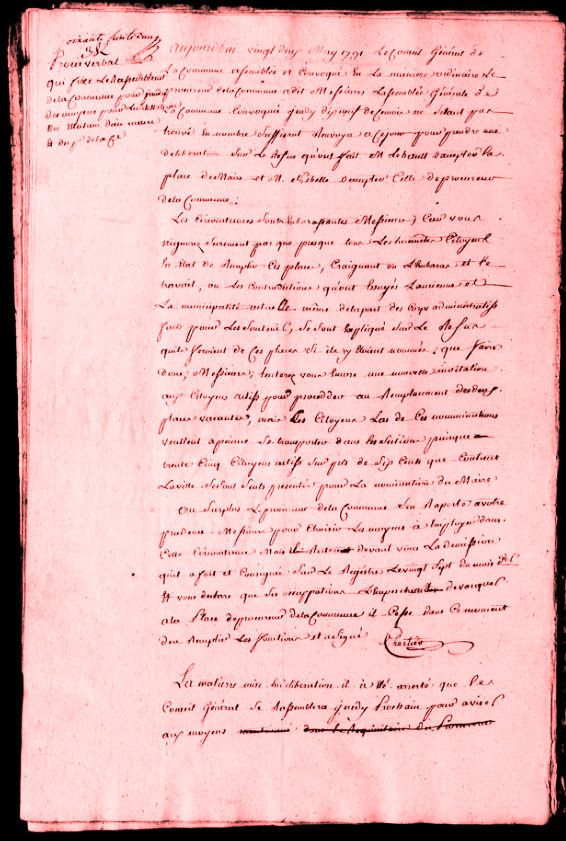 Procès verbal
qui fixe le Rassemblement
de la Commune pour prendre
des moyens pour
du
Aujourd'hui vingt deux May 1791 Le Conseil Général de
La Commune assemblée et Convoqué En La maniere ordinaire Le
procureur de la Commune a dit Messieurs L'assemblée Générale de
La Commune Convoquée jeudy dixneuf de Ce mois ne s'etant pas
trouvé En nombre Suffisant Renvoya a Ce jour pour prendre une
deliberation Sur Le Refus qu'ont fait M. d'accepter La
place de Maire et M. d'accepter Celle de procureur
de la Commune.
Les Circonstances Sont Embarassantes Messieurs, Car vous
n'ignorez Surement pas que presque tous Les Citoyens
En Etat de Remplir Ces places, Craignant ou L'Embaras et Le
travail, ou Les Contradictions qu'ont Essuyés L'ancienne et
La municipalité actuelle même de la part des Corps administratifs
faits pour Les Soutenir, Se Sont Expliqué Sur Le Refus
qu'ils feroient de Ces places Si ils y Etoient nommés; que faire
donc, Messieurs, tenterez vous Encore une nouvelle invitation
aux Citoyens actifs pour proceder au Remplacement des deux
places vacantes, mais Les Citoyens Las de Ces nominations
veullent a peine Se transporter dans Les Sections puisque
trente Cinq Citoyens actifs Sur prés de Six Cents que Contient
La ville Se Sont Seuls presentés pour La nomination du Maire
Au Surplus Le procureur de la Commune S'en Raporte a votre
prudence Messieurs pour Choisir Les moyens a Employer dans
Cette Circonstance Mais devant vous La demission
qu'il a fait et Consignée Sur Le Registre Le vingt Sept du mois
Et vous declare que Ses occupations L'Empechent de vacquer
a La Place de procureur de la Commune il Cesse dans Ce moment
d'en Remplir Les fonctions et a Signé
La matiere mise En deliberation il a Eté arreté que Le
Conseil Général Se Rassemblera jeudy Prochain pour aviser
aux moyens